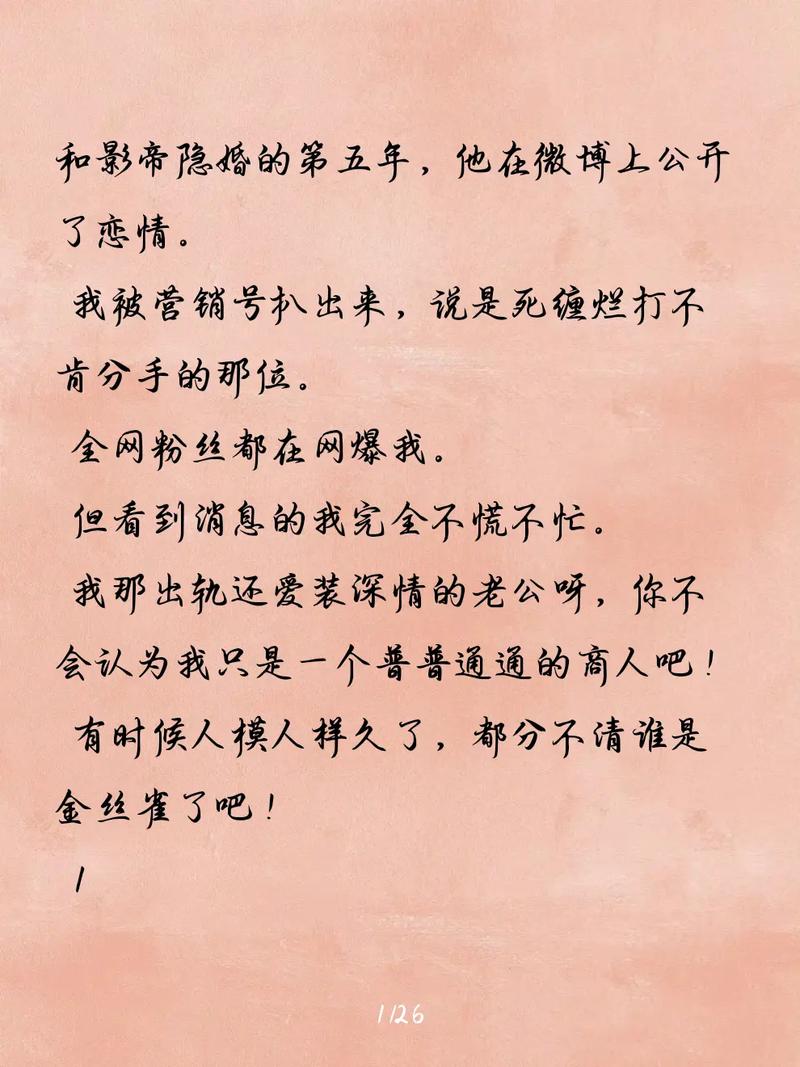 和影帝隐婚的第五年，他在微博上公开
了恋情。
我被营销号扒出来，说是死缠烂打不
肯分手的那位。
全网粉丝都在网爆我。
但看到消息的我完全不慌不忙。
我那出轨还爱装深情的老公呀，你不
会认为我只是一个普普通通的商人吧！
有时候人模人样久了，都分不清谁是
金丝雀了吧！
1
1/26